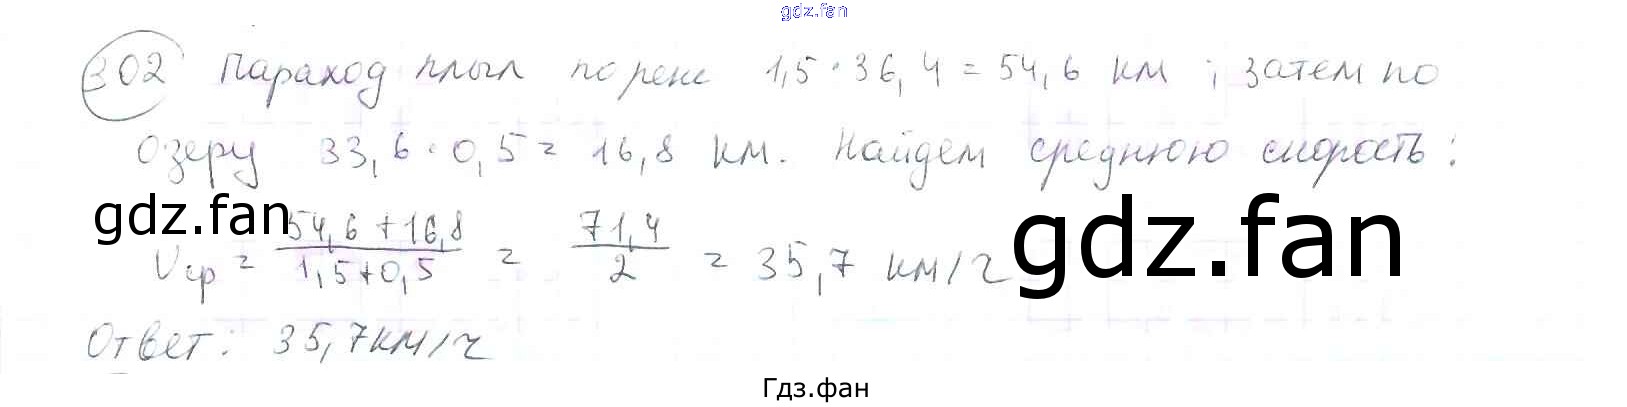 gdz.fan
302 Параход плыл по реке 1,5 · 36,4 = 54,6 км ; затем по
озеру 33,6 · 0,5 = 16,8 км. Найдем среднюю скорость:
gdz.fan
Vср = (54,6 + 16,8)/(1,5+0,5) = 71,4/2 = 35,7 км/ч
gdz.fan
Ответ: 35,7 км/ч
Гдз.фан